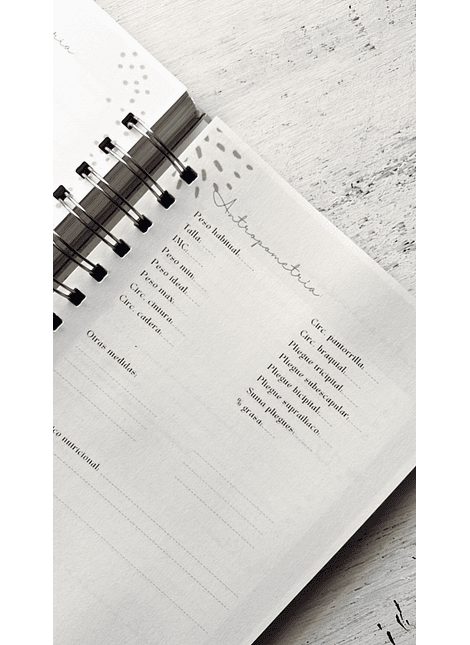 Antropometria
Peso habitual.
Talla.
IMC.
Peso min.
Peso ideal.
Peso max.
Circ. cintura.
Circ. cadera.
Circ. pantorrilla.
Circ. braquial.
Pliegue tricipital.
Pliegue subescapular.
Pliegue bicipital.
Pliegue supraíliaco.
Suma pliegues.
% grasa.
Otras medidas.
nutricional.